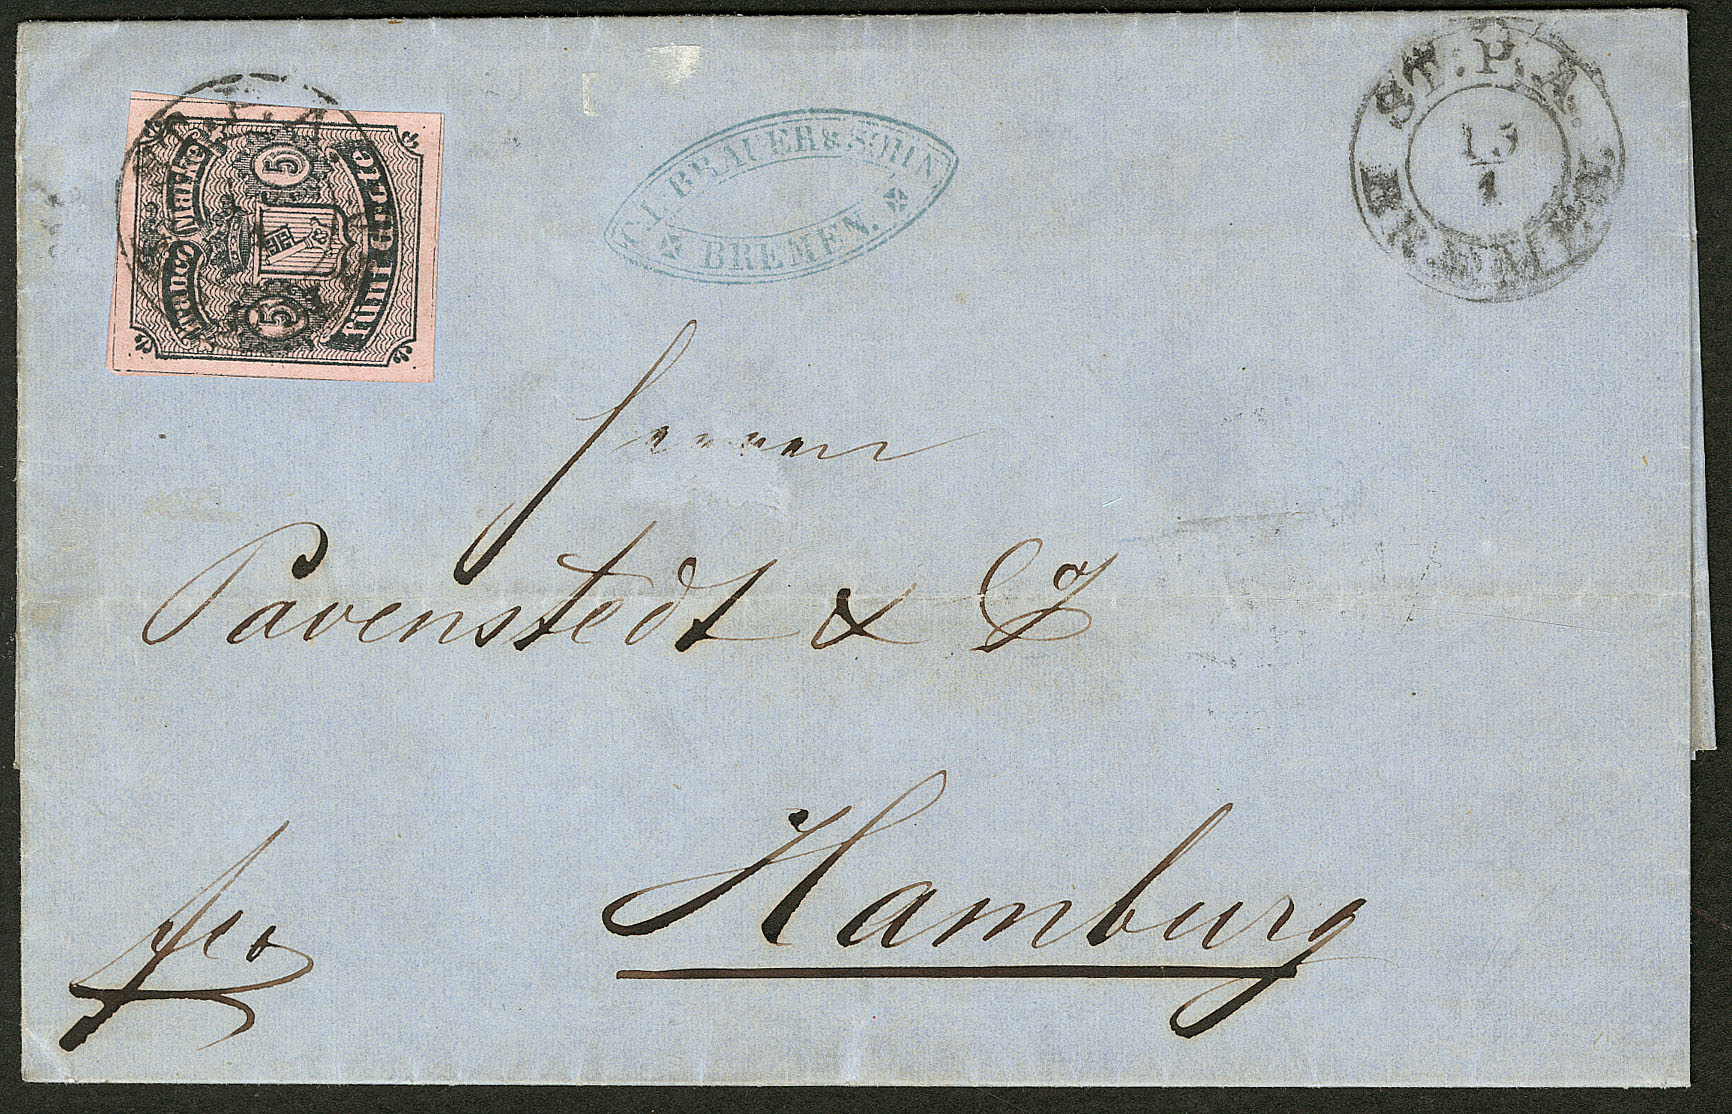 Franco Marke
5
5
fünf Grote
C.L. BRAUER & SOHN.
BREMEN.
ST. P. A.
15
1
BREMEN
Herren
Pavenstedt & Co
Hamburg
fco